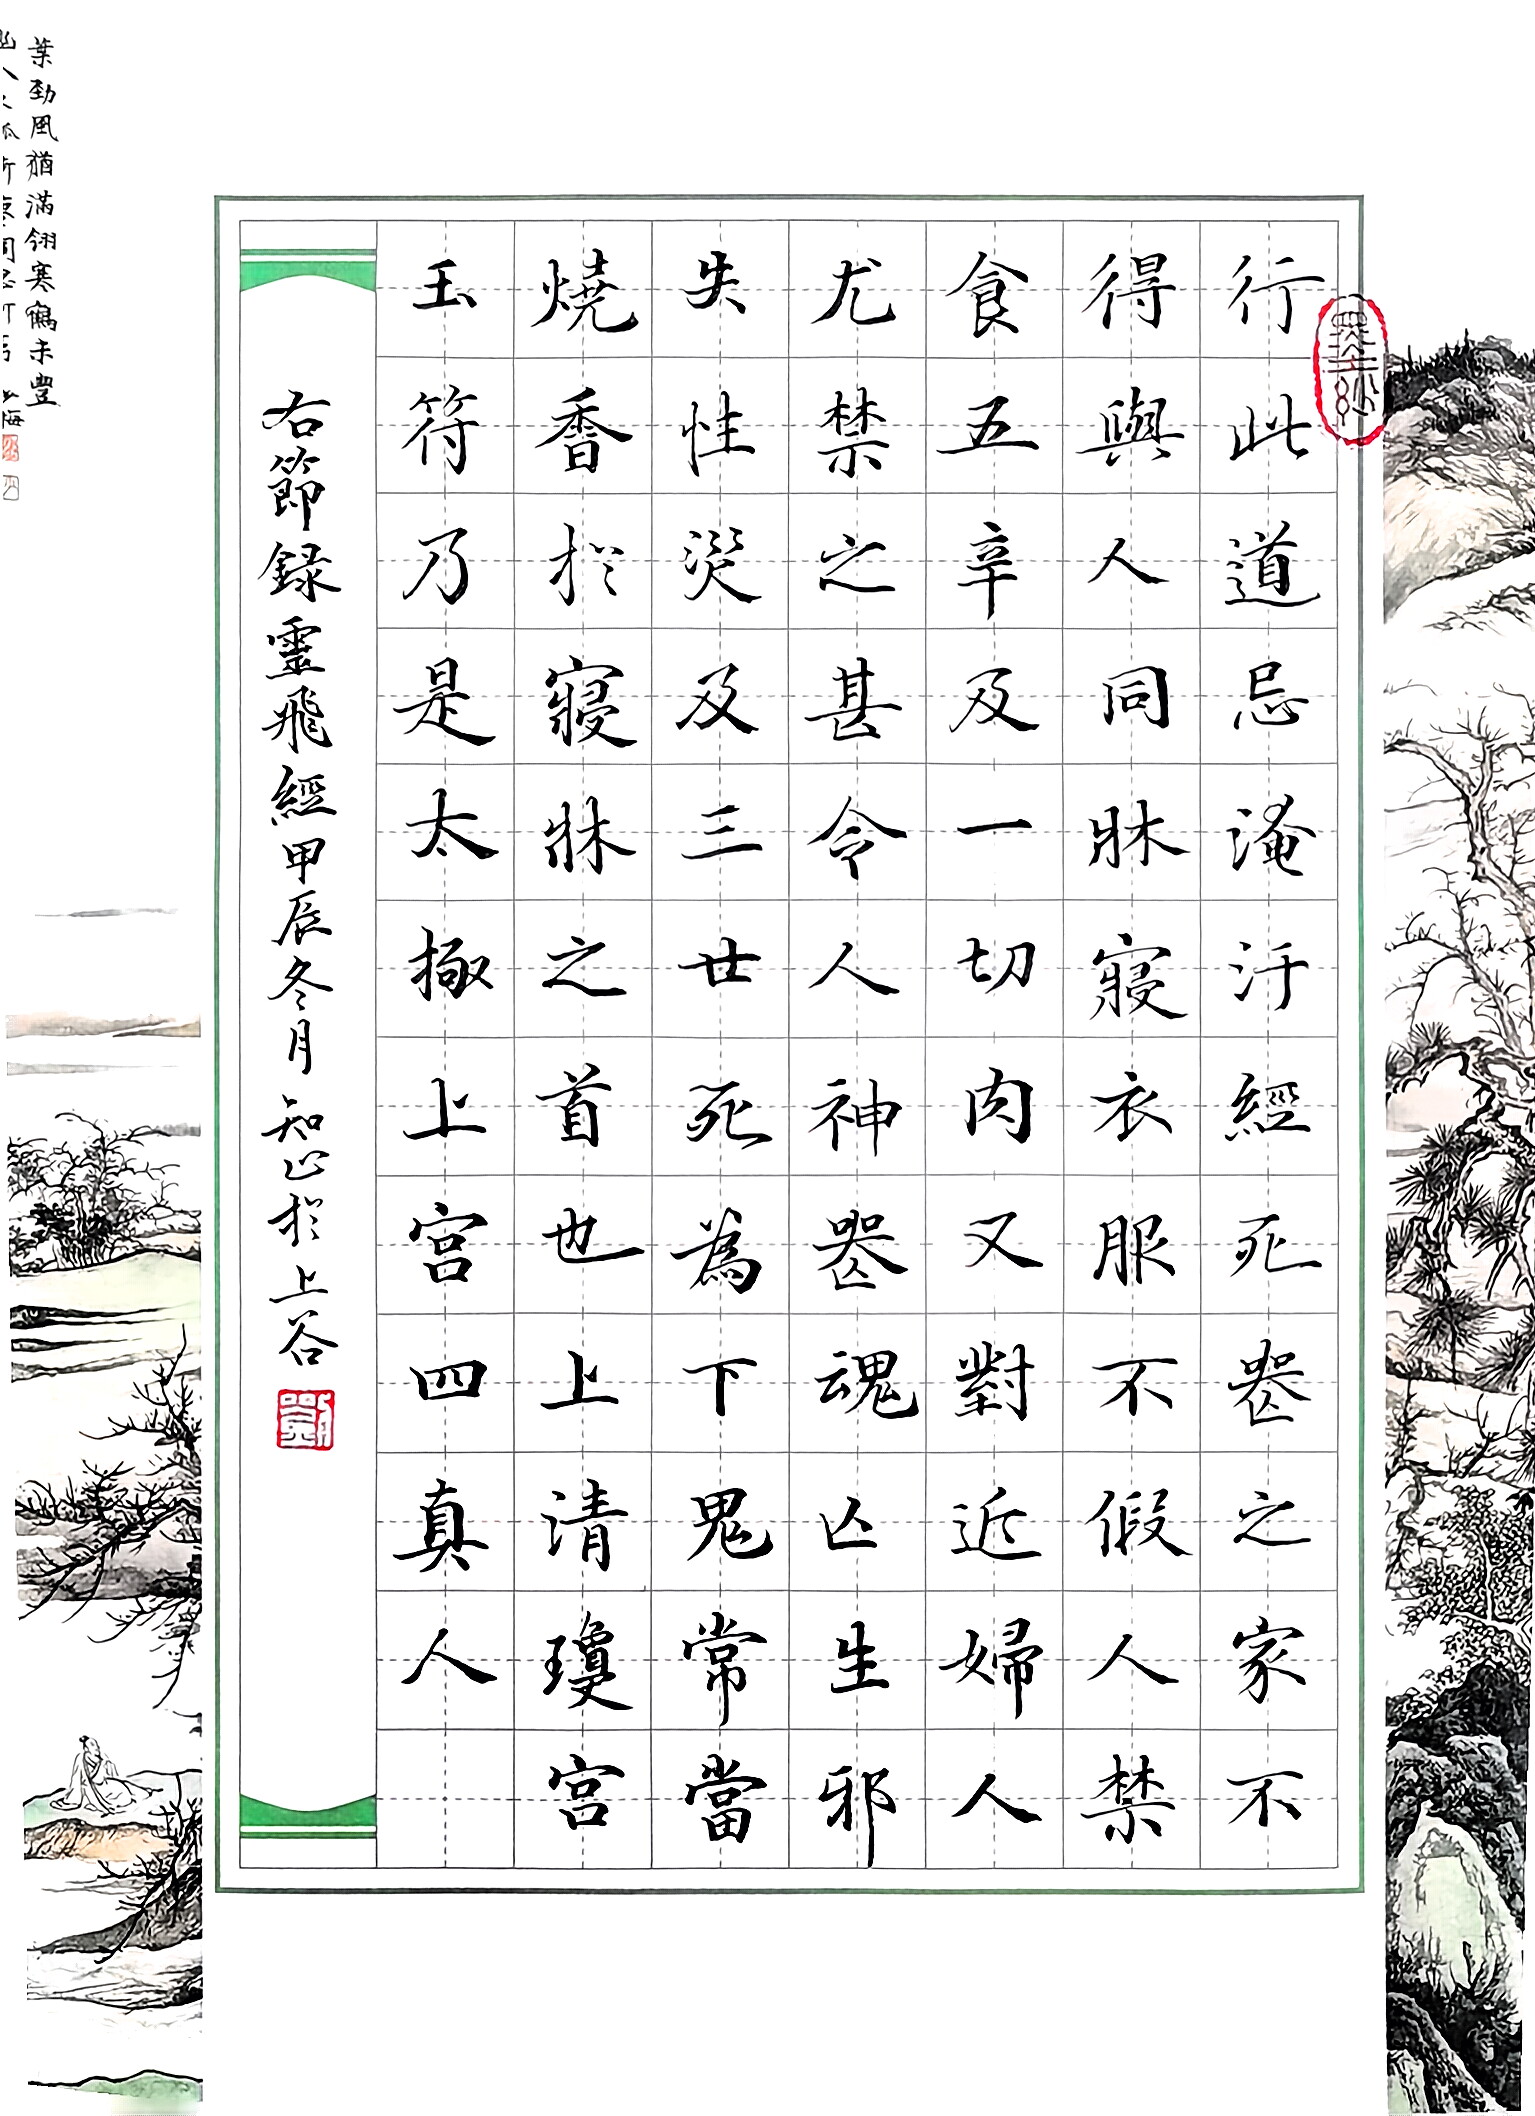 行此道忌淹汙經死喪之家不
得與人同牀寢衣服不假人禁
食五辛及一切肉又對近婦人
尤禁之甚令人神喪魂亡生邪
失性災及三世死為下鬼常當
燒香於寢牀之首也上清瓊宮
玉符乃是太極上宮四真人
右節録靈飛經甲辰冬月知止於上谷
葉勁風猶滿翎寒鶴未豐